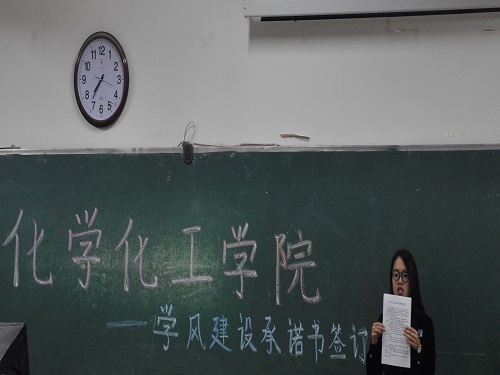 化学化工学院
——学风建设承诺书签订
12
1
2
3
4
5
6
7
8
9
10
11